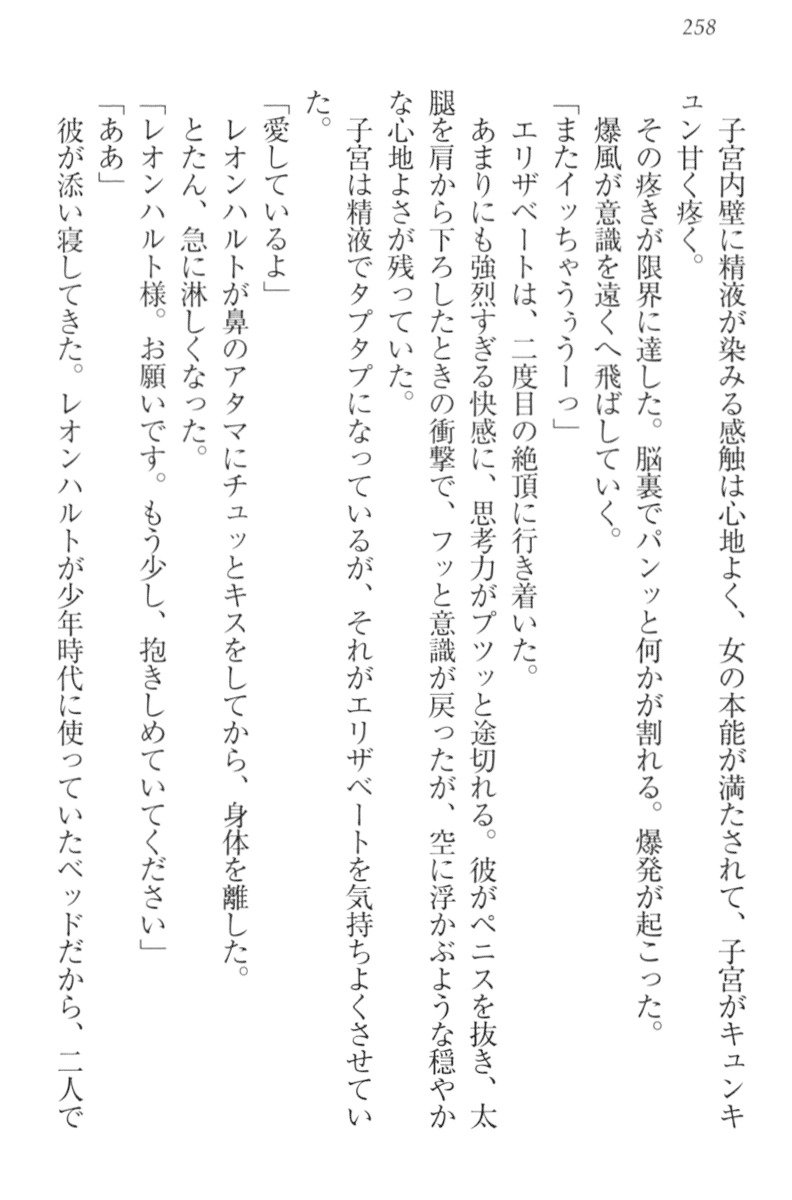 258
子宮内壁に精液が染みる感触は心地よく、女の本能が満たされて、子宮がキュンキ
ュン甘く疼く。
その疼きが限界に達した。脳裏でパンッと何かが割れる。爆発が起こった。
爆風が意識を遠くへ飛ばしていく。
「またイッちゃうぅうーっ」
エリザベートは、二度目の絶頂に行き着いた。
あまりにも強烈すぎる快感に、思考力がプツッと途切れる。彼がペニスを抜き、太
腿を肩から下ろしたときの衝撃で、フッと意識が戻ったが、空に浮かぶような穏やか
な心地よさが残っていた。
子宮は精液でタプタプになっているが、それがエリザベートを気持ちよくさせてい
た。
「愛しているよ」
レオンハルトが鼻のアタマにチュッとキスをしてから、身体を離した。
とたん、急に淋しくなった。
「レオンハルト様。お願いです。もう少し、抱きしめていてください」
「ああ」
彼が添い寝してきた。レオンハルトが少年時代に使っていたベッドだから、二人で